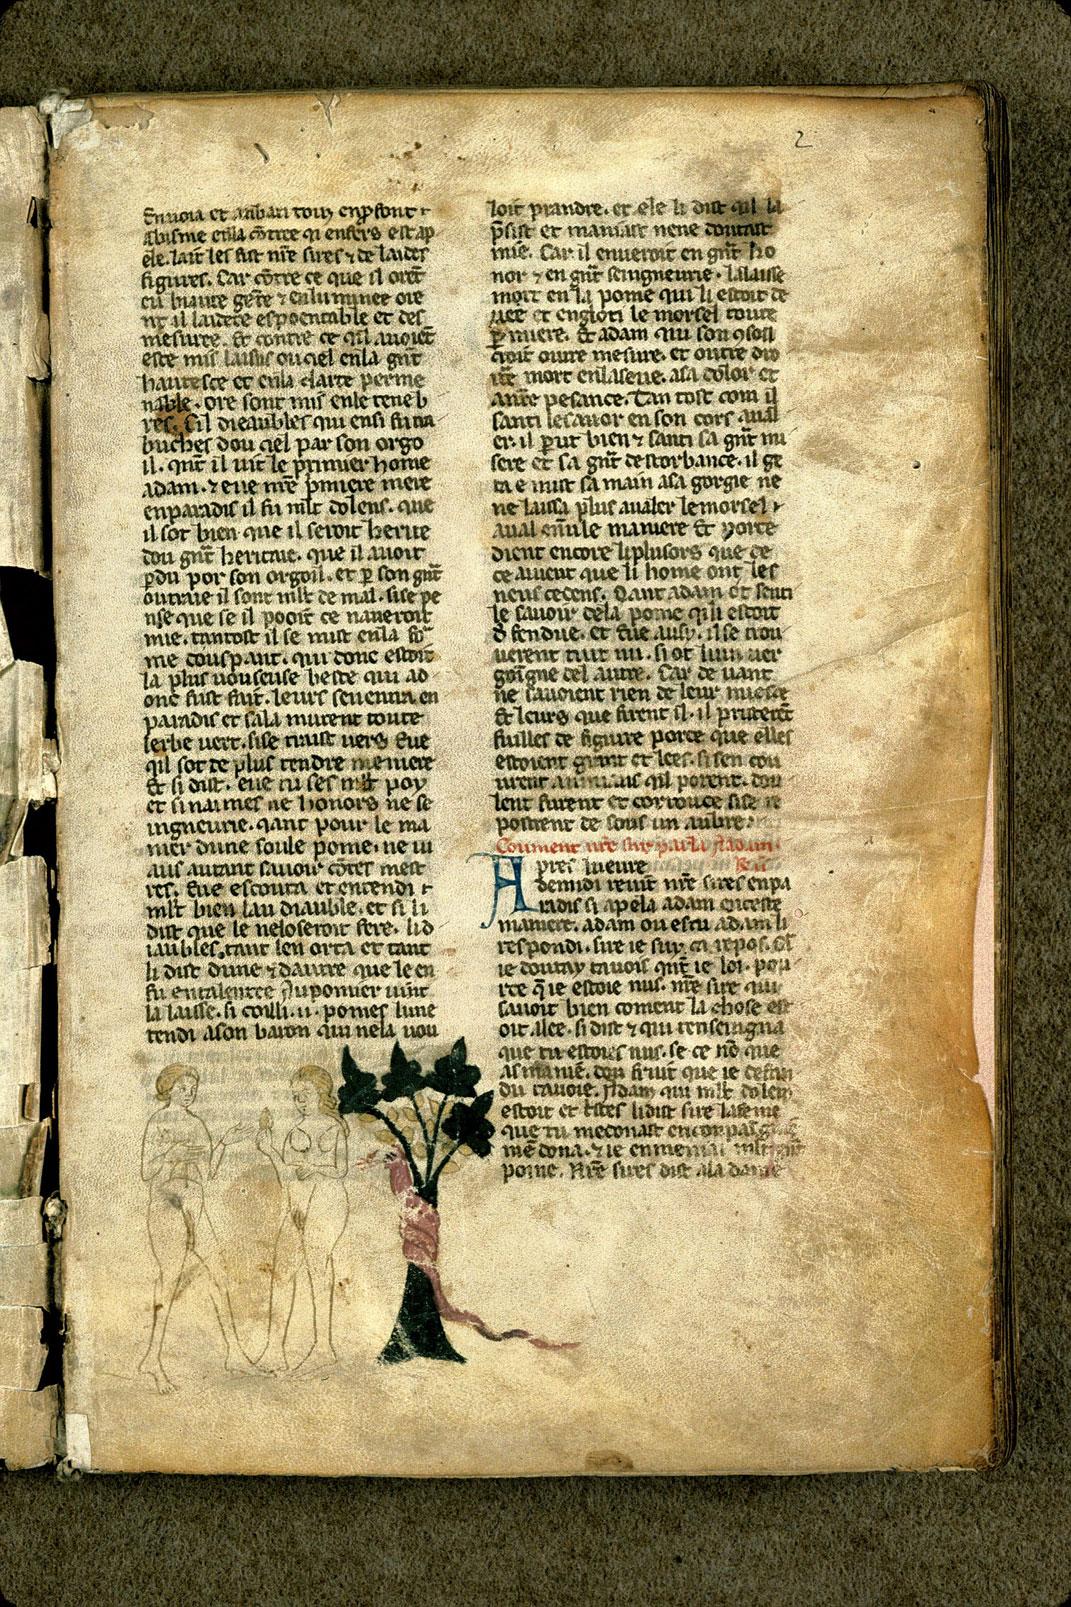 2
abisme enla cōtre qi enfers est ap
ele. lait les fist nr̄e sires ⁊ de laides
figures. Car cōtre ce que il orēt
eu biaute gēte ⁊ enluminee ore
nt il laidete espoentable et des
mesuree. Et contre ce qil auoiēt
este mis laisus ou ciel enla gn̄t
hautesce et enla clarte perme
nable. ore sont mis enle teneb
res. Cil dieaubles qui ensi fu tra
buches dou ciel par son orgo
il. qnt̄ il uit le primier home
adam. ⁊ eue nr̄e pmiere mere
enparadis il fu ml̄t dolens. que
il sot bien que il seroit herite
dou gn̄t heritaie. que il auoit
pdu por son orgoil. et p son gn̄t
outraie il sont ml̄t de mal. si se pe
nse que se il pooit ce naueroit
mie. tantost il se mist enla for
me dou spant. qui donc estoit
la plus uouseuse beste qui ad
onc fust fait. leurs seuenna en
paradis et sala murent toute
lerbe uert. si se traist uers Eue
qil sot de plus tendre meniere
Et si dist. eue tu ses ml̄t poy
et si naimes ne honors ne se
ingneurie. qant pour le ma
nier dune soule pome. ne ui
aus autant sauoir cōtes mest
res. Eue escouta et entendi
ml̄t bien lau diauble. et si li
dist que le neloseroit fere. li d
iaubles tant len orta et tant
li dist dune ⁊ dautre que le en
fu entalentee Au pomier uint
la lasse. si coilli .ii. pomes lune
tendi a son baron qui nela uou
loit prandre. et ele li dist qil la
psist et maniast nene doutast
mie. Car il enueroit en gn̄t ho
nor ⁊ en gn̄t seingneurie. la lasse
mort en la pome qui li estoit de
uee et engloti le morsel toute
pmiere. Et adam qui son consoil
croit outre mesure. et outre dro
it mort enlaserie. asa color et
autre pesance. Tan tost com il
santi lesauor en son cors aual
er. il put bien ⁊ santi sa gn̄t mi
sere et sa gn̄t destorbance. il ge
ta e mist sa main asa gorgie ne
ne laissa plus aualer le morsel
aual enule maniere Et porce
dient encore li plusors que ce
ce auient que li home ont les
neus dedens. Qant adam ot senti
le sauoir dela pome qili estoit
dfendue. et Eue ausy. il se trou
uerent tuit nu. si ot luns uer
goingne del autre. Car de uant
ne sauoient rien de leur
Et leurs que firent il. il pristerēt
fuilles de figuire porce que elles
estoient grant et lees. si sen cou
urent qil porent. dou
lent furent et corrouce si se re
postrent de sous un aubre.
Coment nr̄e sire parla Adam.
Apres lueure
demidi reuit nr̄e sires enpa
radis si apela adam en ceste
maniere. adam ou es tu adam li
respondi. sire ie suy
ie doutay ta uois qnt̄ ie loi. pou
rce q̄ ie estoie nus. nr̄e sire qui
sauoit bien coment la chose est
oit alee. si dist ⁊ qui tenseingna
que tu estoies nus. se ce nō que
as maniē dou fruit que ie defen
du tauoie. Adam qui ml̄t dolent
estoit et tstes li dist sire la feme
que tu medonast en conpaignie
me dona. ⁊ ie en meniai
pome. Nr̄e sires dist ala dame